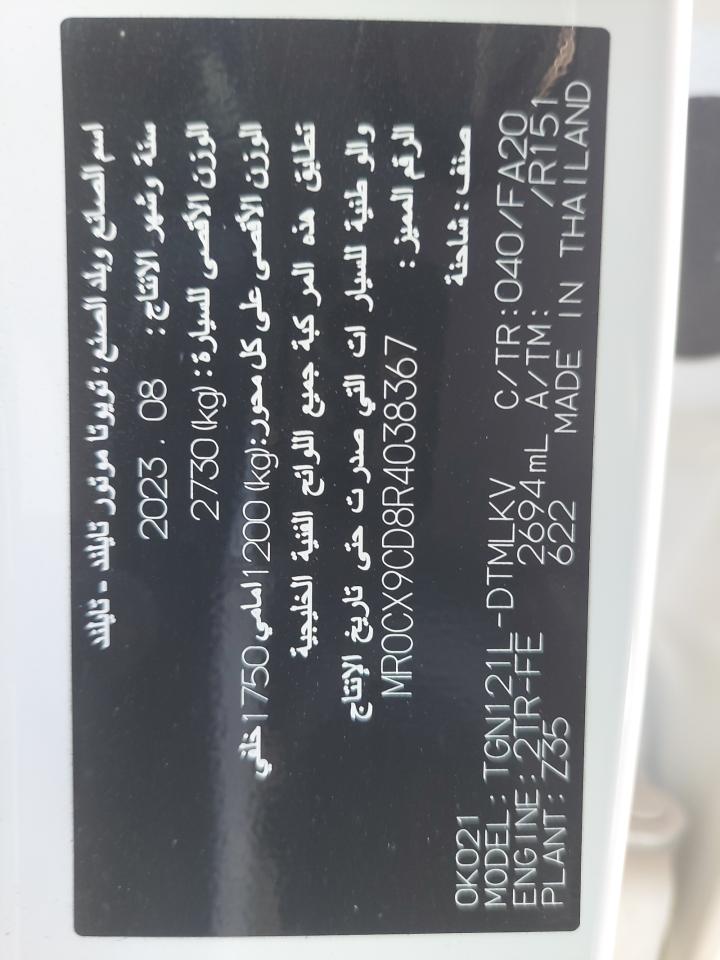 اسم الصانع وبلد الصنع : تويوتا موتور تايلند - تايلند
سنة وشهر الانتاج : 2023 . 08
الوزن الأقصى للسيارة : 2730 (kg)
الوزن الأقصى على كل محور :(kg) 1200 امامي 1750 خلفي
تطابق هذه المركبة جميع اللوائح الفنية الخليجية
والوطنية للسيارات التي صدرت حتى تاريخ الإنتاج
الرقم المميز : MR0CX9CD8R4038367
صنف : شاحنة
0K021
MODEL : TGN121L-DTMLKV C/TR:040/FA20
ENGINE : 2TR-FE 2694mL A/TM: /R151
PLANT : Z35 622 MADE IN THAILAND